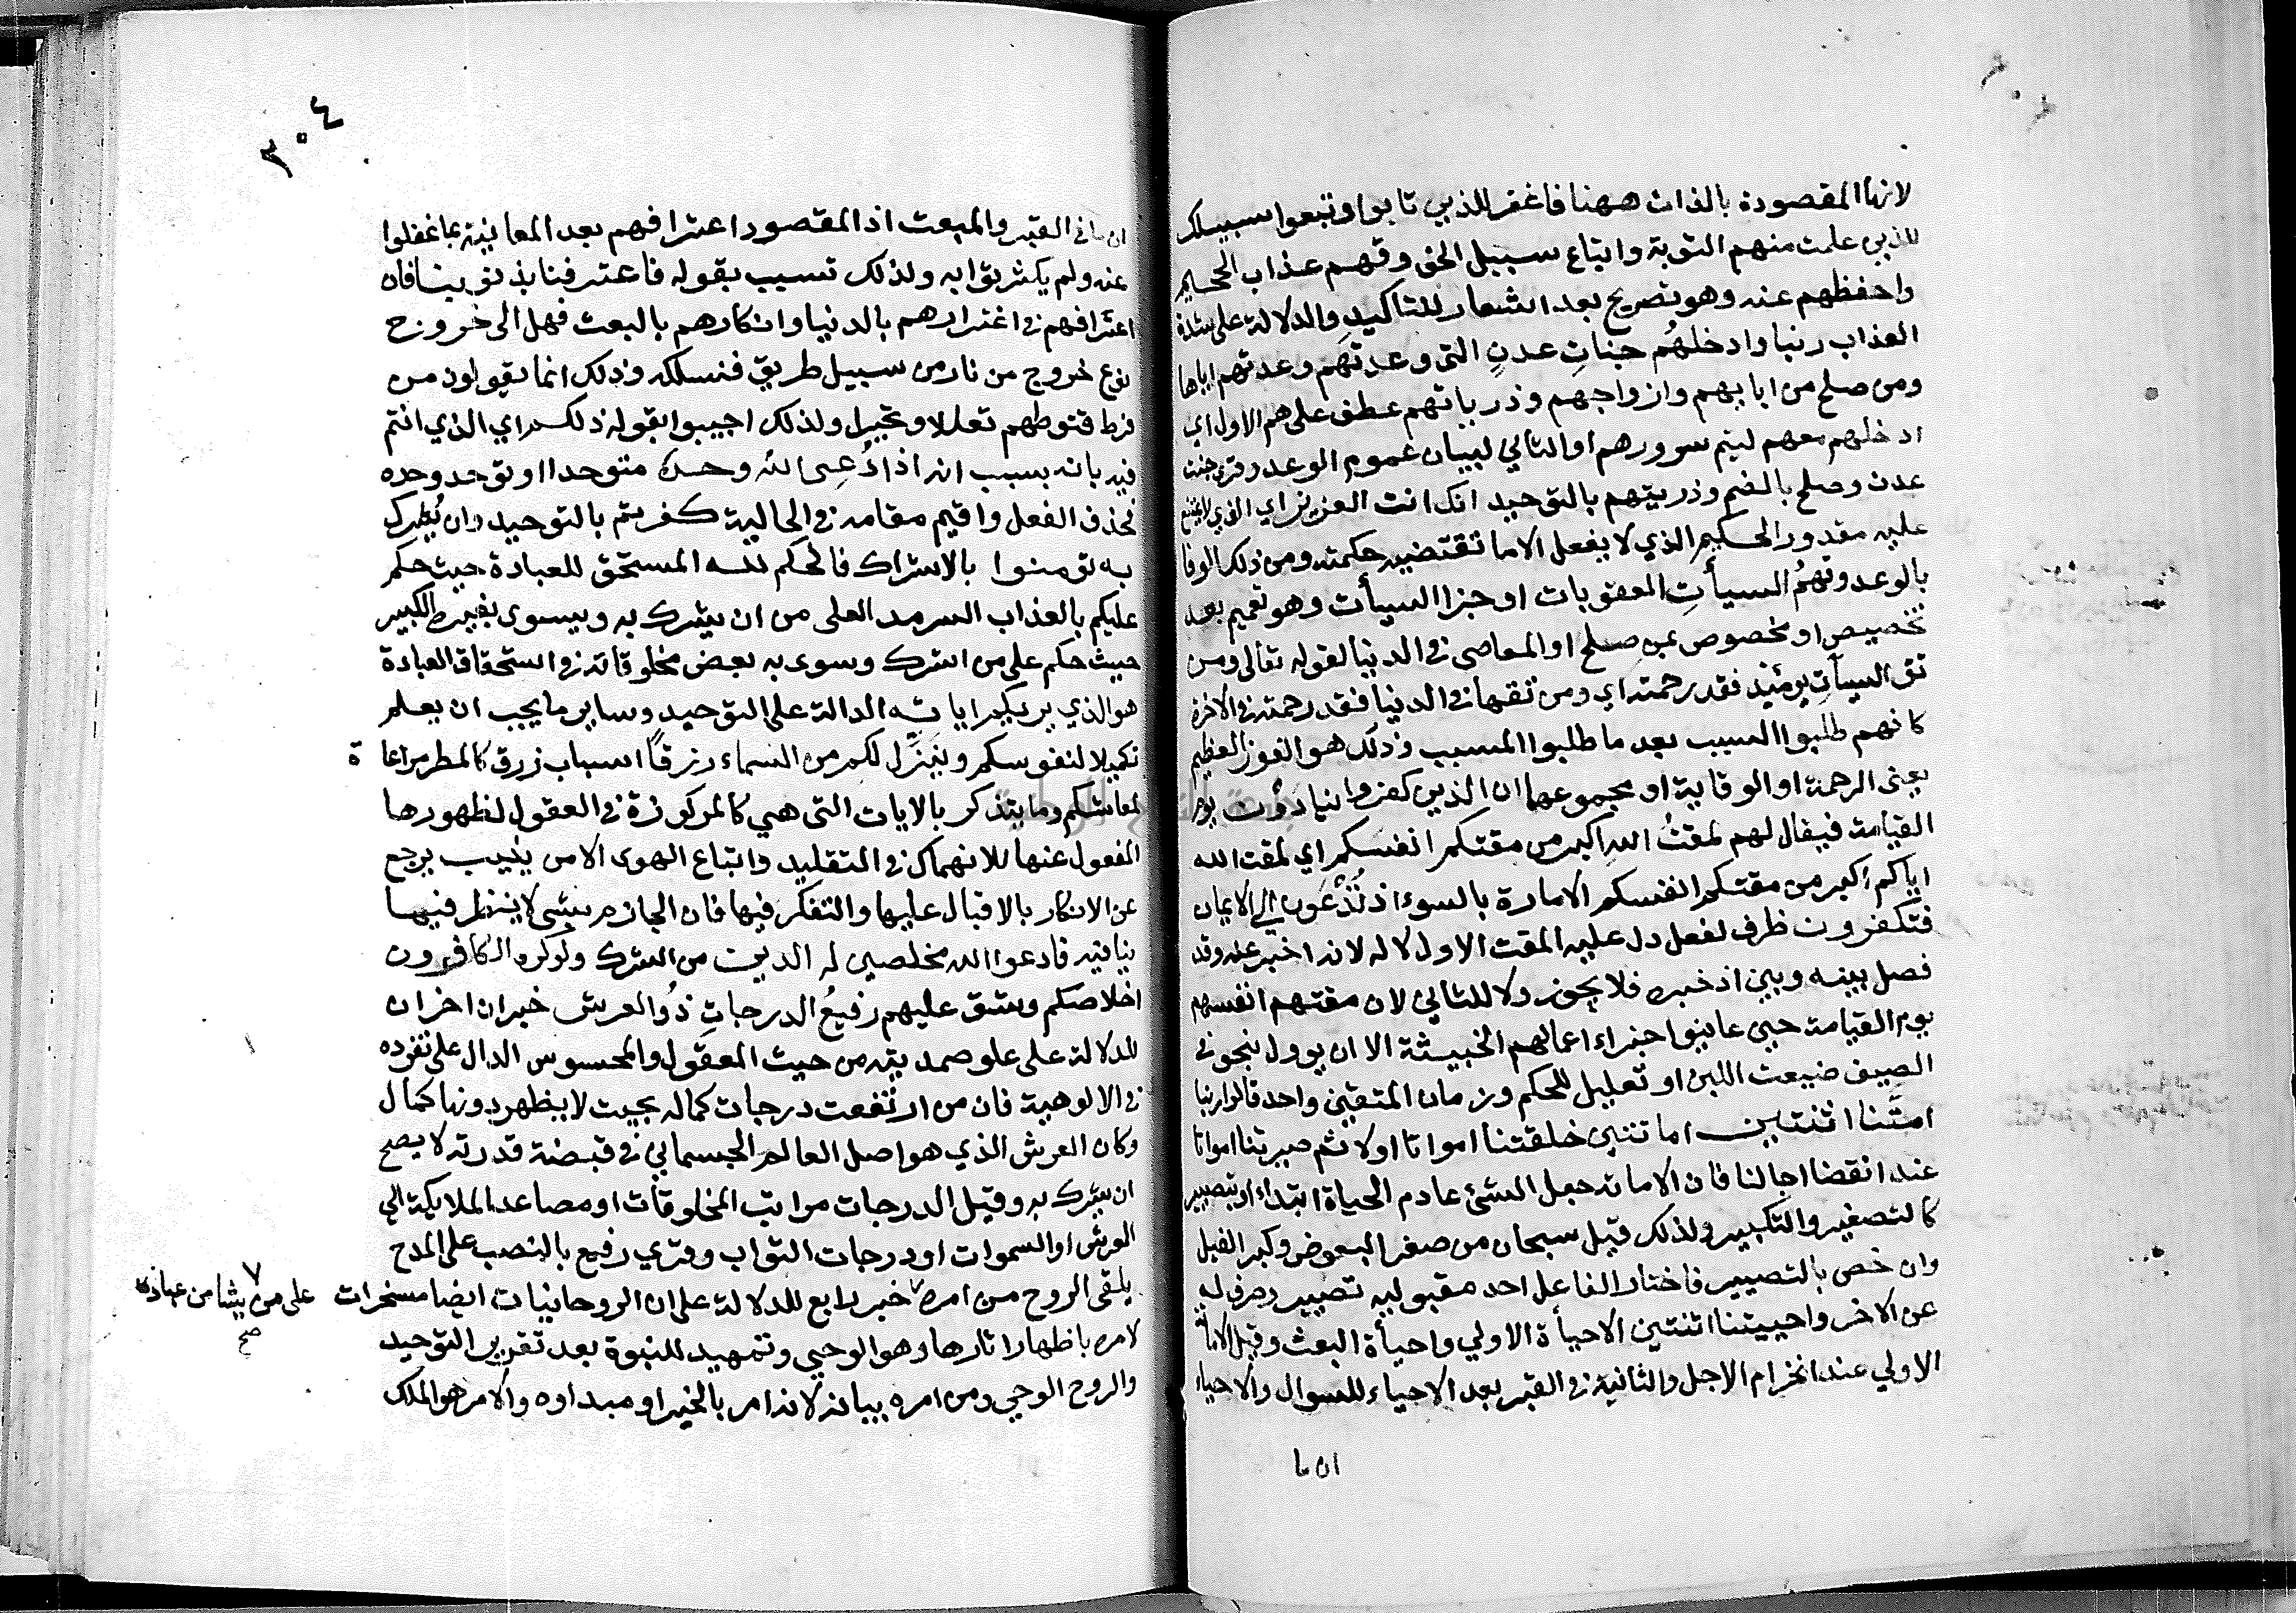 لانها المقصودة بالذات ههنا فاغفر للذين تابوا واتبعوا سبيلك
للذين علمت منهم التوبة واتباع سبيل الحق وقهم عذاب الجحيم
واحفظهم عنه وهو تصريح بعد اشعار للتاكيد والدلالة على شدة
العذاب ربنا وادخلهُم جنات عدنٍ التى وعدتهَم وعدتهم اياها
ومن صلح من ابايهم وازواجهم وذرياتهم عطف على هم الاول اي
ادخلهم معهم ليتم سرورهم او الثاني لبيان عموم الوعد وقرئ جنت
عدن وصلح بالضم وذريتهم بالتوحيد انك انت العزيز اي الذي لا يمتنع
عليه مقدور الحكيم الذي لا يفعل الا ما تقتضيه حكمته ومن ذلك الوفا
بالوعد وقهمُ السيأتِ العقوبات او جزا السيأت وهو تعميم بعد
تخصيص او مخصوص بمن صلح او المعاصى فى الدنيا لقوله تعالى ومن
تق السيأتِ يومئذ فقد رحمته اي ومن تقها فى الدنيا فقد رحمته فى الاخرة
كانهم طلبوا السبب بعد ما طلبوا المسبب وذلك هو الفوز العظيم
يعنى الرحمة او الوقاية او مجموعهما ان الذين كفروا ينادَون يوم
القيامة فيقال لهم لمقتُ الله اكبر من مقتكم انفسكم اي لمقت الله
اياكم اكبر من مقتكم انفسكم الامارة بالسوء اذ تُدْعَون الى الايمان
فتكفرون ظرف لفعل دل عليه المقت الاول لا له لانه اخبر عنه وقد
فصل بينه وبين اذ خبره فلا يجوز ولا للثاني لان مقتهم انفسهم
يوم القيامة حين عاينوا جزاء اعمالهم الخبيثة الا ان يوول بنحو فى
الصيف ضيعت اللبن او تعليل للحكم وزمان المقتين واحد قالوا ربنا
امتَّنا اثنتين اماتتين خلقتنا امواتا اولا ثم صيرتنا امواتا
عند انقضا اجالنا فان الاماتة جعل الشئ عادم الحياة ابتداء او بتصيير
كالتصغير والتكبير ولذلك قيل سبحان من صغر البعوض وكبر الفيل
وان خص بالتصيير فاختار الفاعل احد مقبوليه تصيير وصرف له
عن الاخر واحييتنا اثنتين الاحيأة الاولي واحيأة البعث وقيل الاماتة
الاولي عند انخرام الاجل والثانية فى القبر بعد الاحياء للسوال والاحياء
ان ما
٣٠٤
ان ما فى القبر والمبعث اذ المقصود اعترافهم بعد المعاينة بما غفلوا
عنه ولم يكترثوا به ولذلك تسبب بقوله فاعترفنا بذنوبنا فان
اعترافهم فى اغترارهم بالدنيا وانكارهم بالبعث فهل الى خروج
نوع خروج من نار من سبيل طريق فنسلكه وذلك انما يقولون من
فرط قنوطهم تعللا وتحيرا ولذلك اجيبوا بقوله ذلكم اي الذي انتم
فيه بانه بسبب انه اذا دُعِى الله وحده متوحدا او توحد وحده
فحذف الفعل واقيم مقامه فى الحالية كفرتم بالتوحيد وان يُشرك
به تومنوا بالاشراك فالحكم لله المستحق للعبادة حيث حكم
عليكم بالعذاب السرمد العلى من ان يشرك به ويسوى بغيره الكبير
حيث حكم على من اشرك وسوى به بعض مخلوقاته فى استحقاق العبادة
هو الذي يريكم اياته الدالة على التوحيد وساير ما يجب ان يعلم
تكميلا لنفوسكم وينزّل لكم من السماء رزقًا اسباب زرق كالمطر مراعاة
لمعاشكم وما يتذكر بالايات التى هي كالمركوزة فى العقول لظهورها
المفعول عنها للانهماك فى التقليد واتباع الهوى الا من ينيب يرجع
عن الانكار بالاقبال عليها والتفكر فيها فان الجازم بشى لا ينظر فيها
ينافيه فادعوا الله مخلصين له الدين من الشرك ولو كره الكافرون
اخلاصكم وشق عليهم رفيعُ الدرجاتِ ذُو العرش خبران اخران
للدلالة على علو صمديته من حيث المعقول والمحسوس الدال على تفرده
فى الالوهية فان من ارتفعت درجات كماله بحيث لا يظهر دونها كمال
وكان العرش الذي هو اصل العالم الجسماني فى قبضة قدرته لا يصح
ان يشرك به وقيل الدرجات مراتب المخلوقات او مصاعد الملايكة الى
العرش او السموات او درجات الثواب وقري رفيع بالنصب على المدح
يلقى الروح من امره خبر رابع للدلالة على ان الروحانيات ايضا مسخرات
على من يشا من عباده
صح
لامره باظهار اثارها وهو الوحي وتمهيد للنبوة بعد تقرير التوحيد
والروح الوحي ومن امره بيانه لانه امر بالخير او مبداوه والامر هو الملك